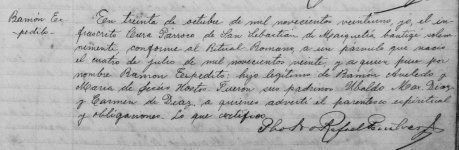 Ramón Ex-
pedito.-
En treinta de octubre de mil novecientos veintiuno, yo, el in-
frascrito Cura Párroco de San Sebastián de Maiquetía bauticé solem-
nemente, conforme al Ritual Romano, a un párvulo que nació
el cuatro de julio de mil novecientos veinte, y a quien puse por
nombre Ramón Expedito: hijo legítimo de Ramón
María de Jesús Hostos. Fueron sus padrinos Ubaldo Mar. Díaz
y Carmen de Díaz, a quienes advertí el parentesco espiritual
y obligaciones. Lo que certifico.
Pbro.